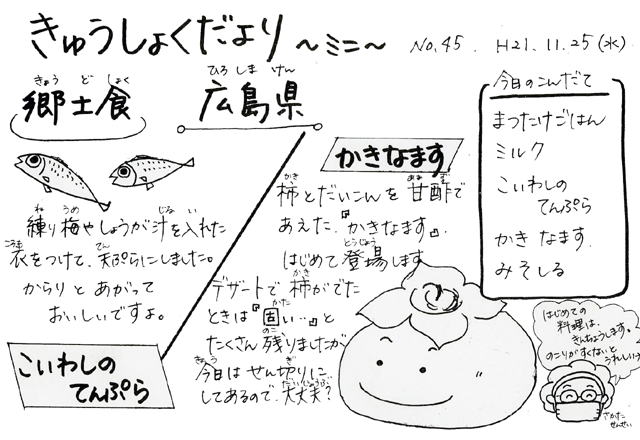 きゅうしょくだより ～ミニ～ No.45. H21.11.25(水)
きょう ど しょく
郷土食
ひろ しま けん
広島県
今日のこんだて
まつたけごはん
ミルク
こいわしの
てんぷら
かきなます.
みそしる
ね うめ じる い
練り梅やしょうが汁を入れた
ころも てん
衣をつけて、天ぷらにしました。
からりと あがって
おいしいですよ。
こいわしの
てんぷら
かきなます
かき あま ず
柿とだいこんを甘酢で
あえた『かきなます』.
とうじょう
はじめて登場します
かき
デザートで柿がでた
かた
ときは『固い…』と
のこ
たくさん残りましたが
きょう ぎ
今日はせん切りに
だいじょうぶ
してあるので、大丈夫？
はじめての
料理は、
きんちょうします。
のこりがすくないと
うれしい
さかた
せんせい